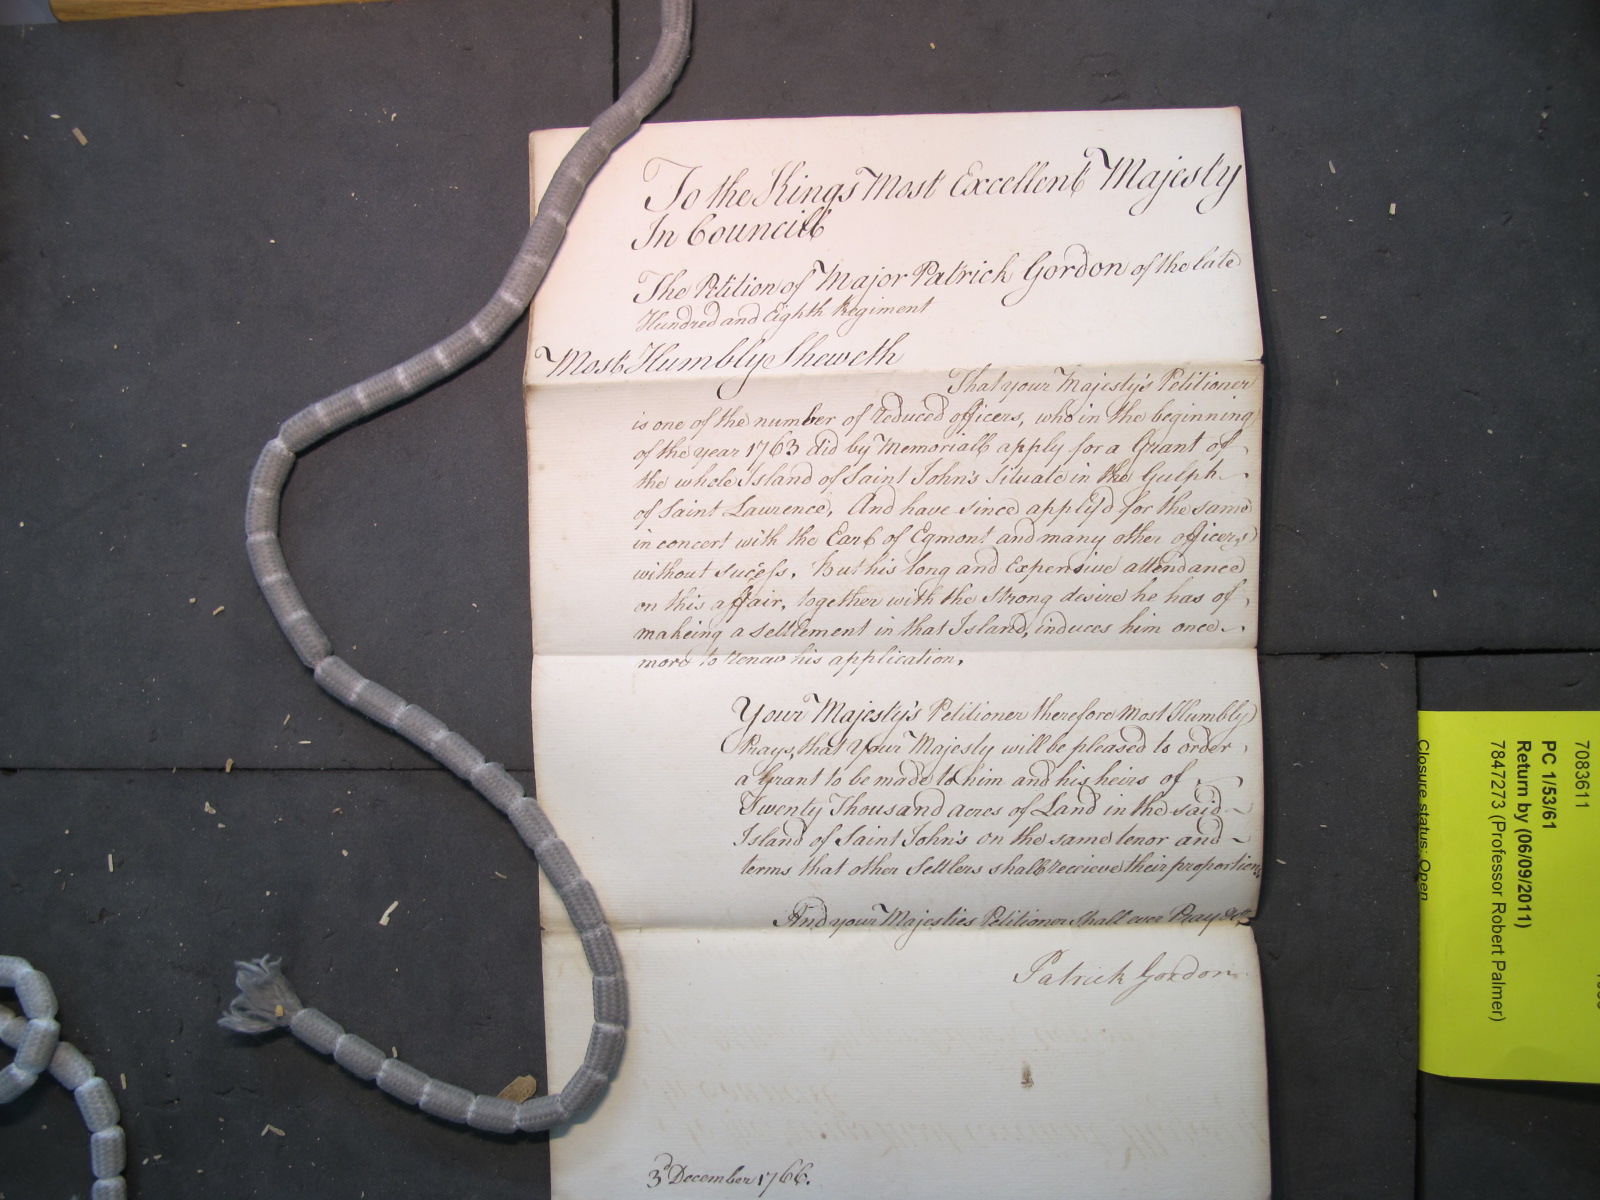 To the Kings Most Excellent Majesty
In Councill
The Petition of Major Patrick Gordon of the late
Hundred and Eighth Regiment
Most Humbly Sheweth
That your Majesty's Petitioner
is one of the number of reduced officers, who in the beginning
of the year 1763 did by Memoriall apply for a Grant of
the whole Island of Saint John's Situate in the Gulph
of Saint Laurence, And have since apply'd for the same
in concert with the Earl of Egmont and many other officers
without sucess. But his long and Expensive attendance
on this affair, together with the Strong desire he has of
makeing a settlement in that Island, induces him once
more to renew his application.
Your Majesty's Petitioner therefore most Humbly
Prays, that Your Majesty will be pleased to order
a Grant to be made to him and his heirs of
Twenty Thousand acres of Land in the said
Island of Saint John's on the same tenor and
terms that other Settlers shall recieve their proportions
And your Majesties Petitioner shall ever Pray &c
Patrick Gordon
3d December 1766.
7083611
PC 1/53/61
Return by (06/09/2011)
7847273 (Professor Robert Palmer)
Closure status: Open